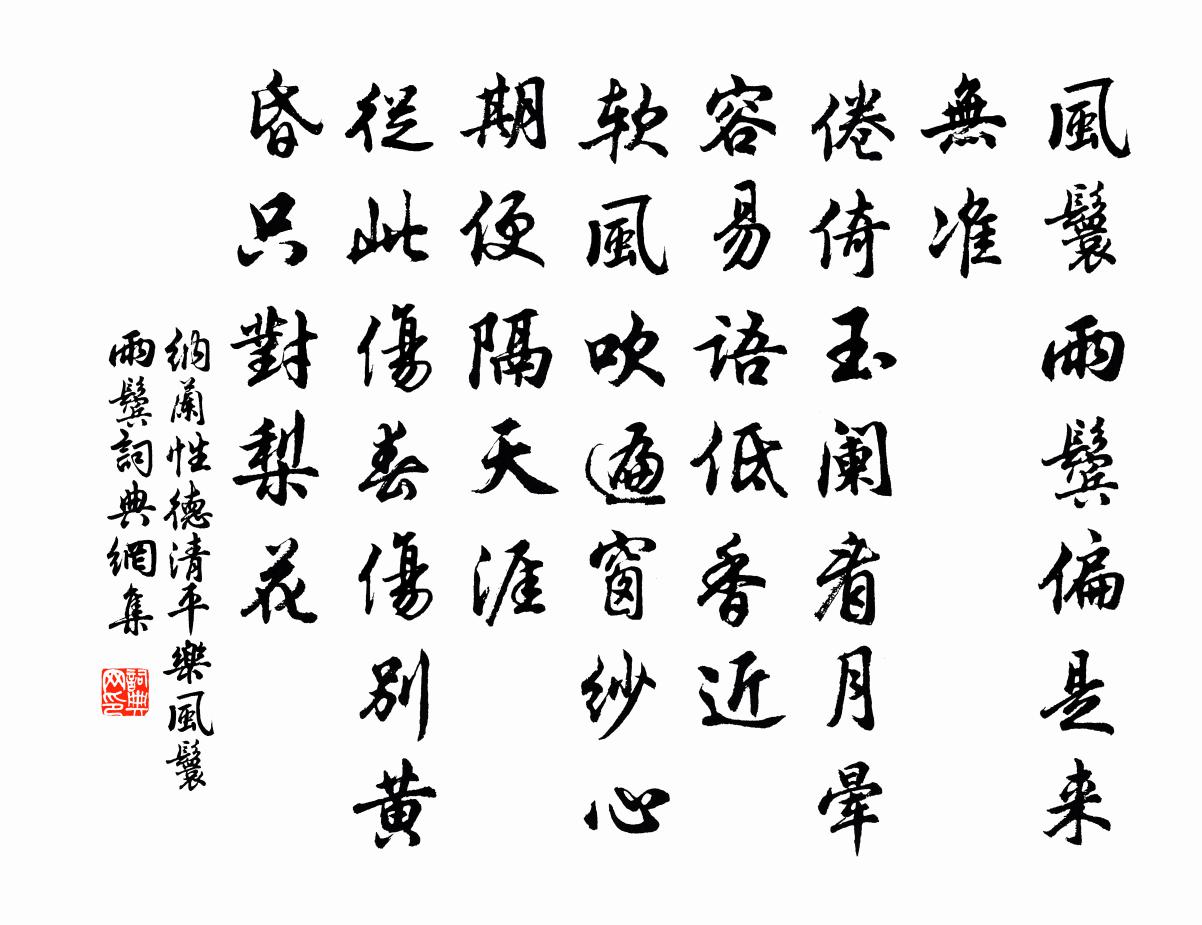 風鬟雨鬢偏是来
無准
倦倚玉闌看月暈
容易語低香近
軟風吹遍窗紗心
期便隔天涯
從此傷春傷别黄
昏只對梨花
納蘭性德清平樂風鬟
雨鬢詞典網集
詞典网印